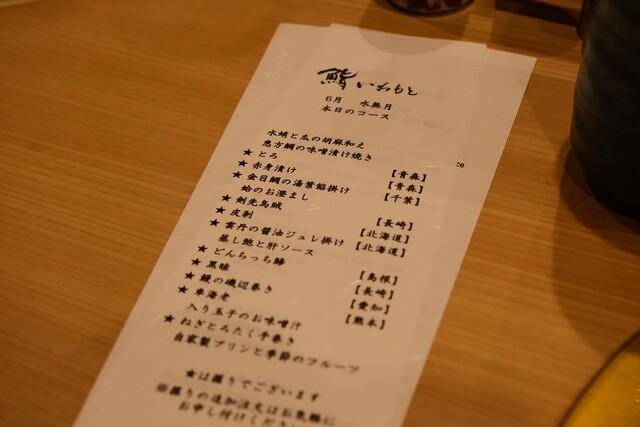 鮨 いわもと
6月 水無月
本日のコース
水蛸と瓜の胡麻和え
恵方鯛の味噌漬け焼き
★とろ 【青森】
★赤身漬け 【青森】
★金目鯛の湯葉餡掛け 【千葉】
蛤のお澄まし
★剣先烏賊 【長崎】
★皮剥 【北海道】
★雲丹の醤油ジュレ掛け 【北海道】
蒸し鮑と肝ソース
★どんちっち鰺 【島根】
★黒睦 【長崎】
★鰻の磯辺巻き 【愛知】
★車海老 【熊本】
入り玉子のお味噌汁
★ねぎとろたく手巻き
自家製プリンと季節のフルーツ
★は握りでございます
※握りの追加注文はお気軽に
お申し付けください
ce